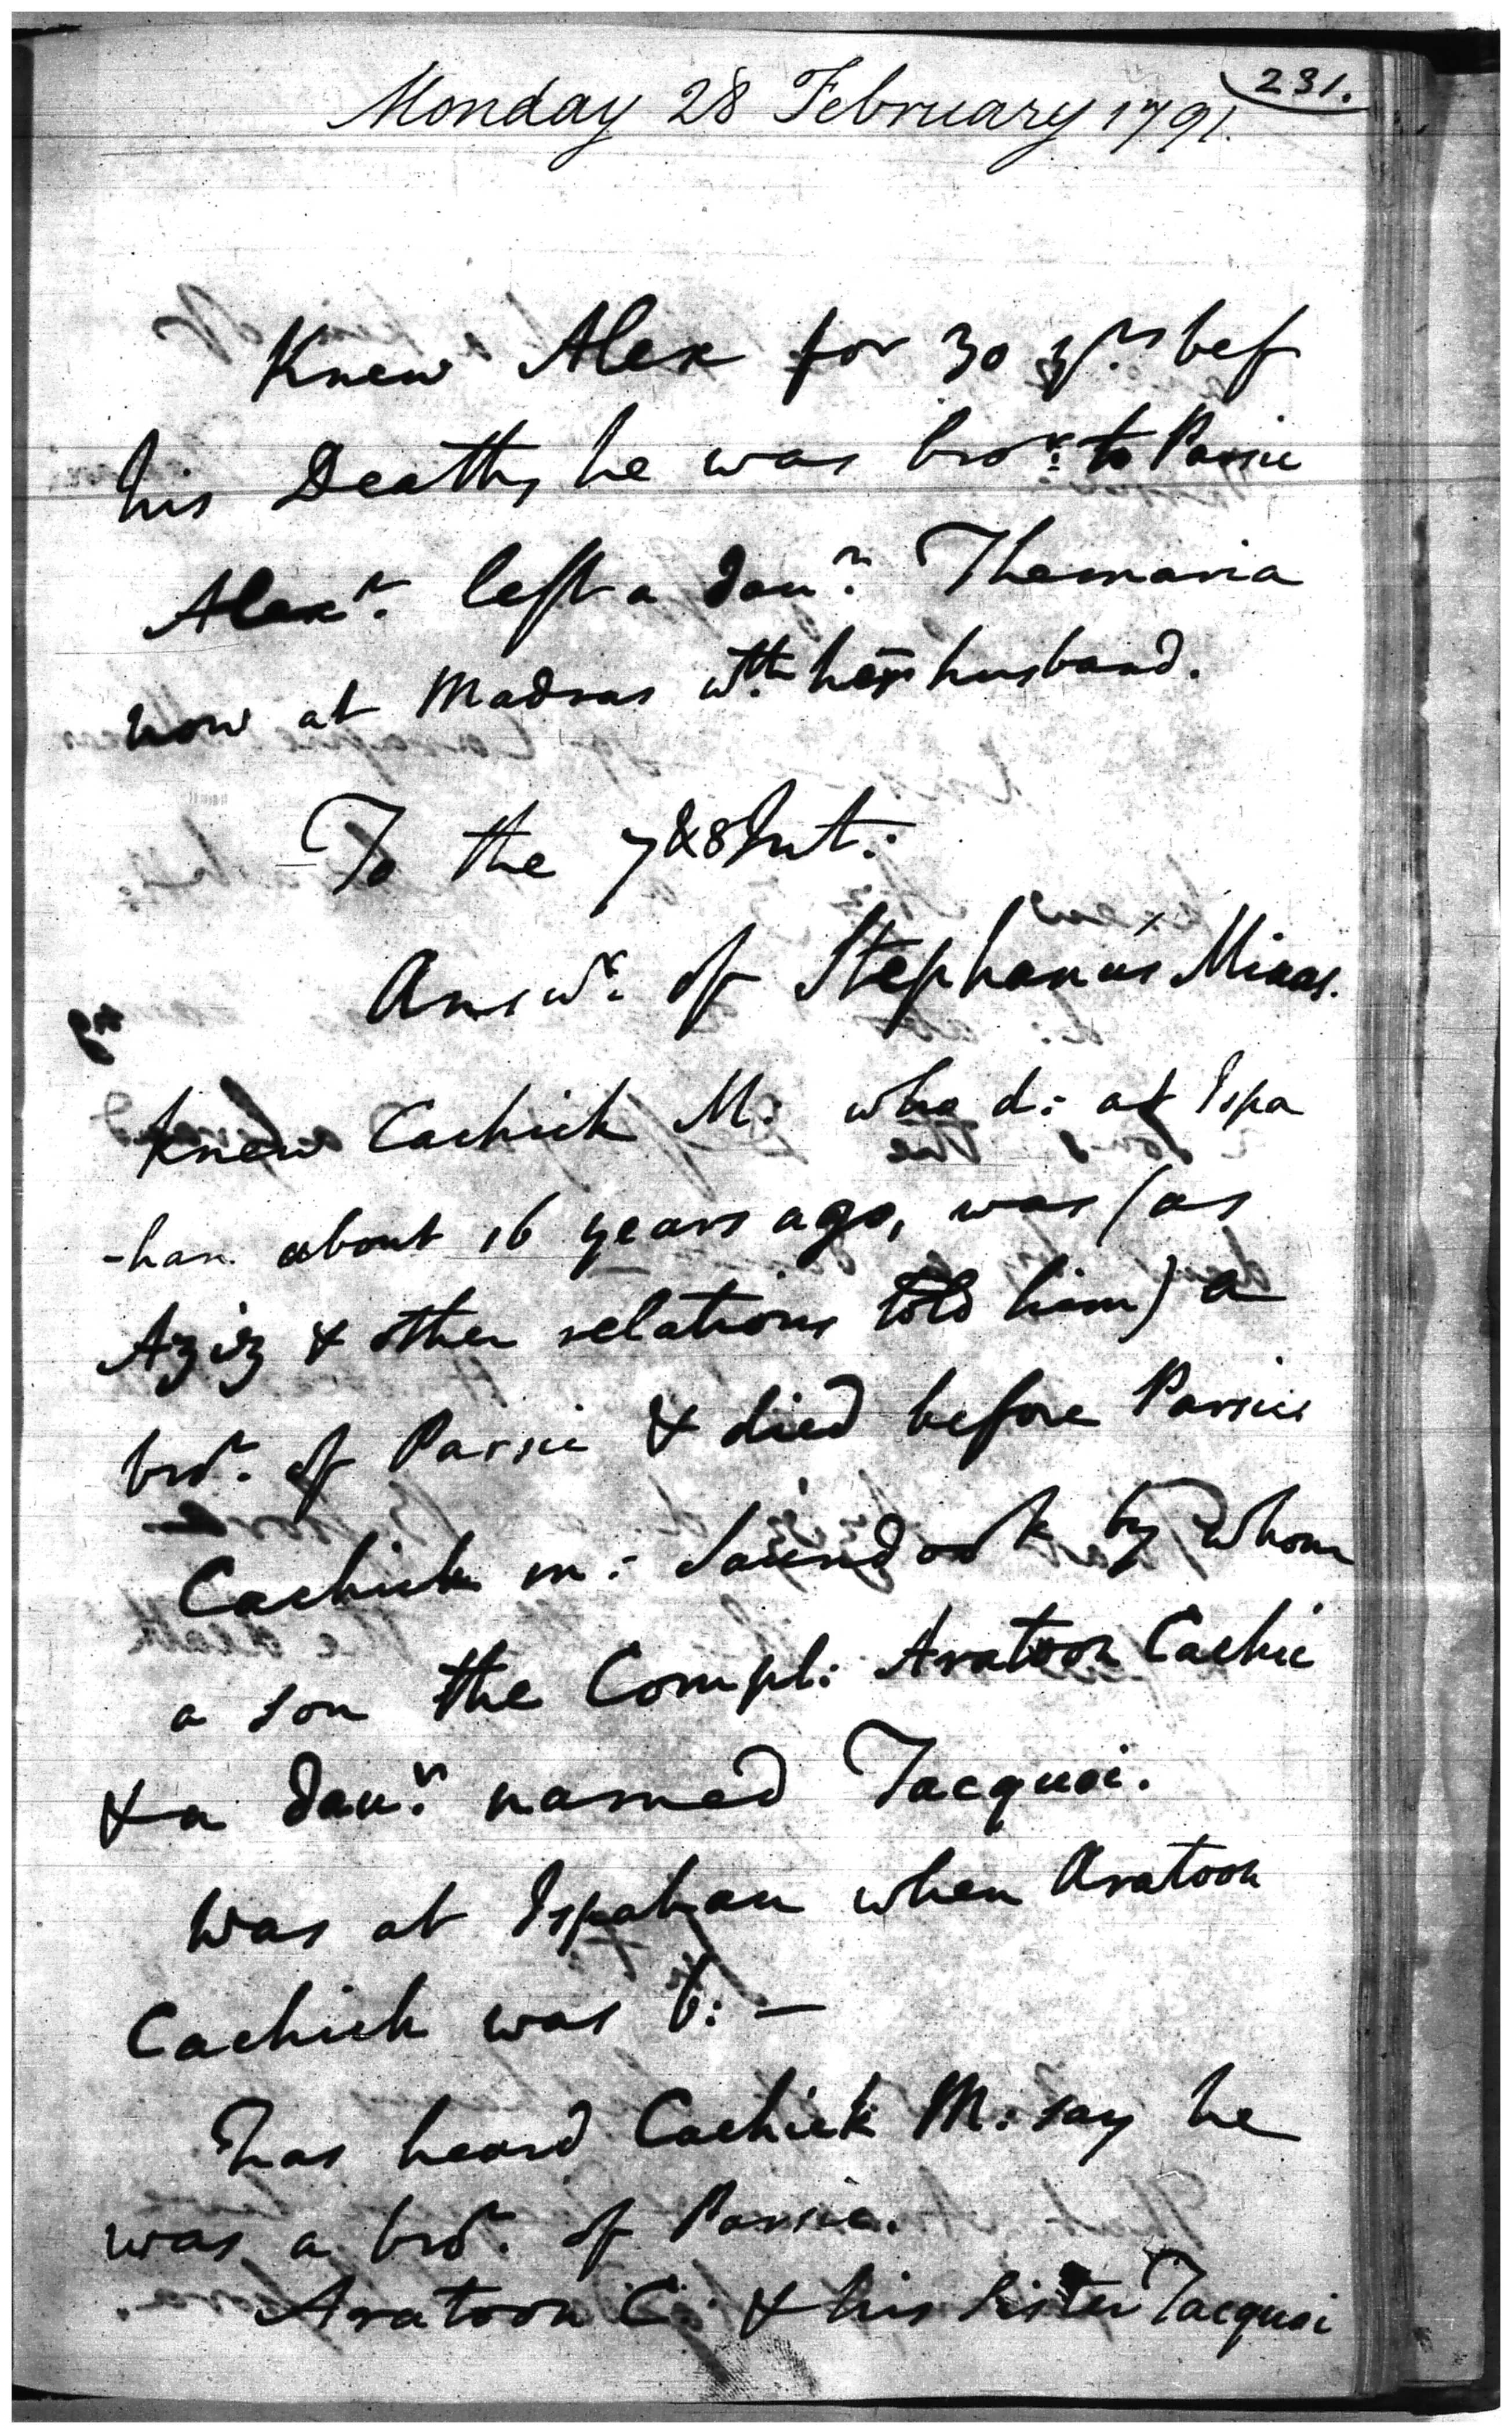 231.
Monday 28 February 1791.
Knew Alex for 30 yrs. bef
his Death, he was bror. to Parsic
Alexr. left a Daur. Themaria
now at Madras wth. her husband.
To the 7 & 8 Int:
Answr. of Stephanus Minas.
Knew Cachick M: who d: at Ispa
-han about 16 years ago, was (as
Aziz & other relations told him) a
bror. of Parsic & died before Parsic
Cachick m: by whom
a son the Compl: Aratoon Cachic
& a Daur. named Tacquoi.
Was at Ispahan when Aratoon
Cachick was b: —
has heard Cachick M: say he
was a bror. of Parsic.
Aratoon C: & his Sister Tacquoi